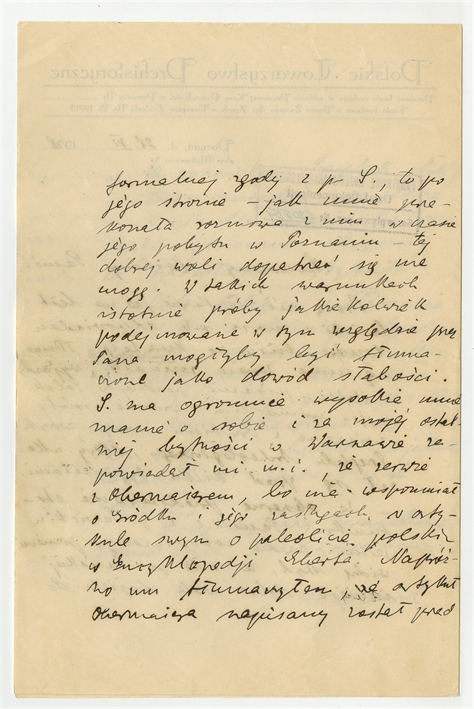 formalnej zgody z p S., to po
jego stronie – jak mnie prze-
konała rozmowa z nim w czasie
jego pobytu w Poznaniu – tej
dobrej woli dopatrzeć się nie
mogę. W takich warunkach
istotnie próby jakiekolwiek
podejmowane w tym względzie przez
Pana mogłyby być tłuma-
czone jako dowód słabości.
S. ma ogromnie wysokie mnie-
manie o sobie i za mojej ostat-
niej bytności w Warszawie za-
powiadał mi m. i., że zerwie
z Obermaierem, bo nie wspomniał
o źródłu i jego zasługach w arty-
kule swym o paleolicie polskim
w Encyklopedji Eberta. Napróż-
no mu tłumaczyłem, że artykuł
Obermaiera napisany został przed